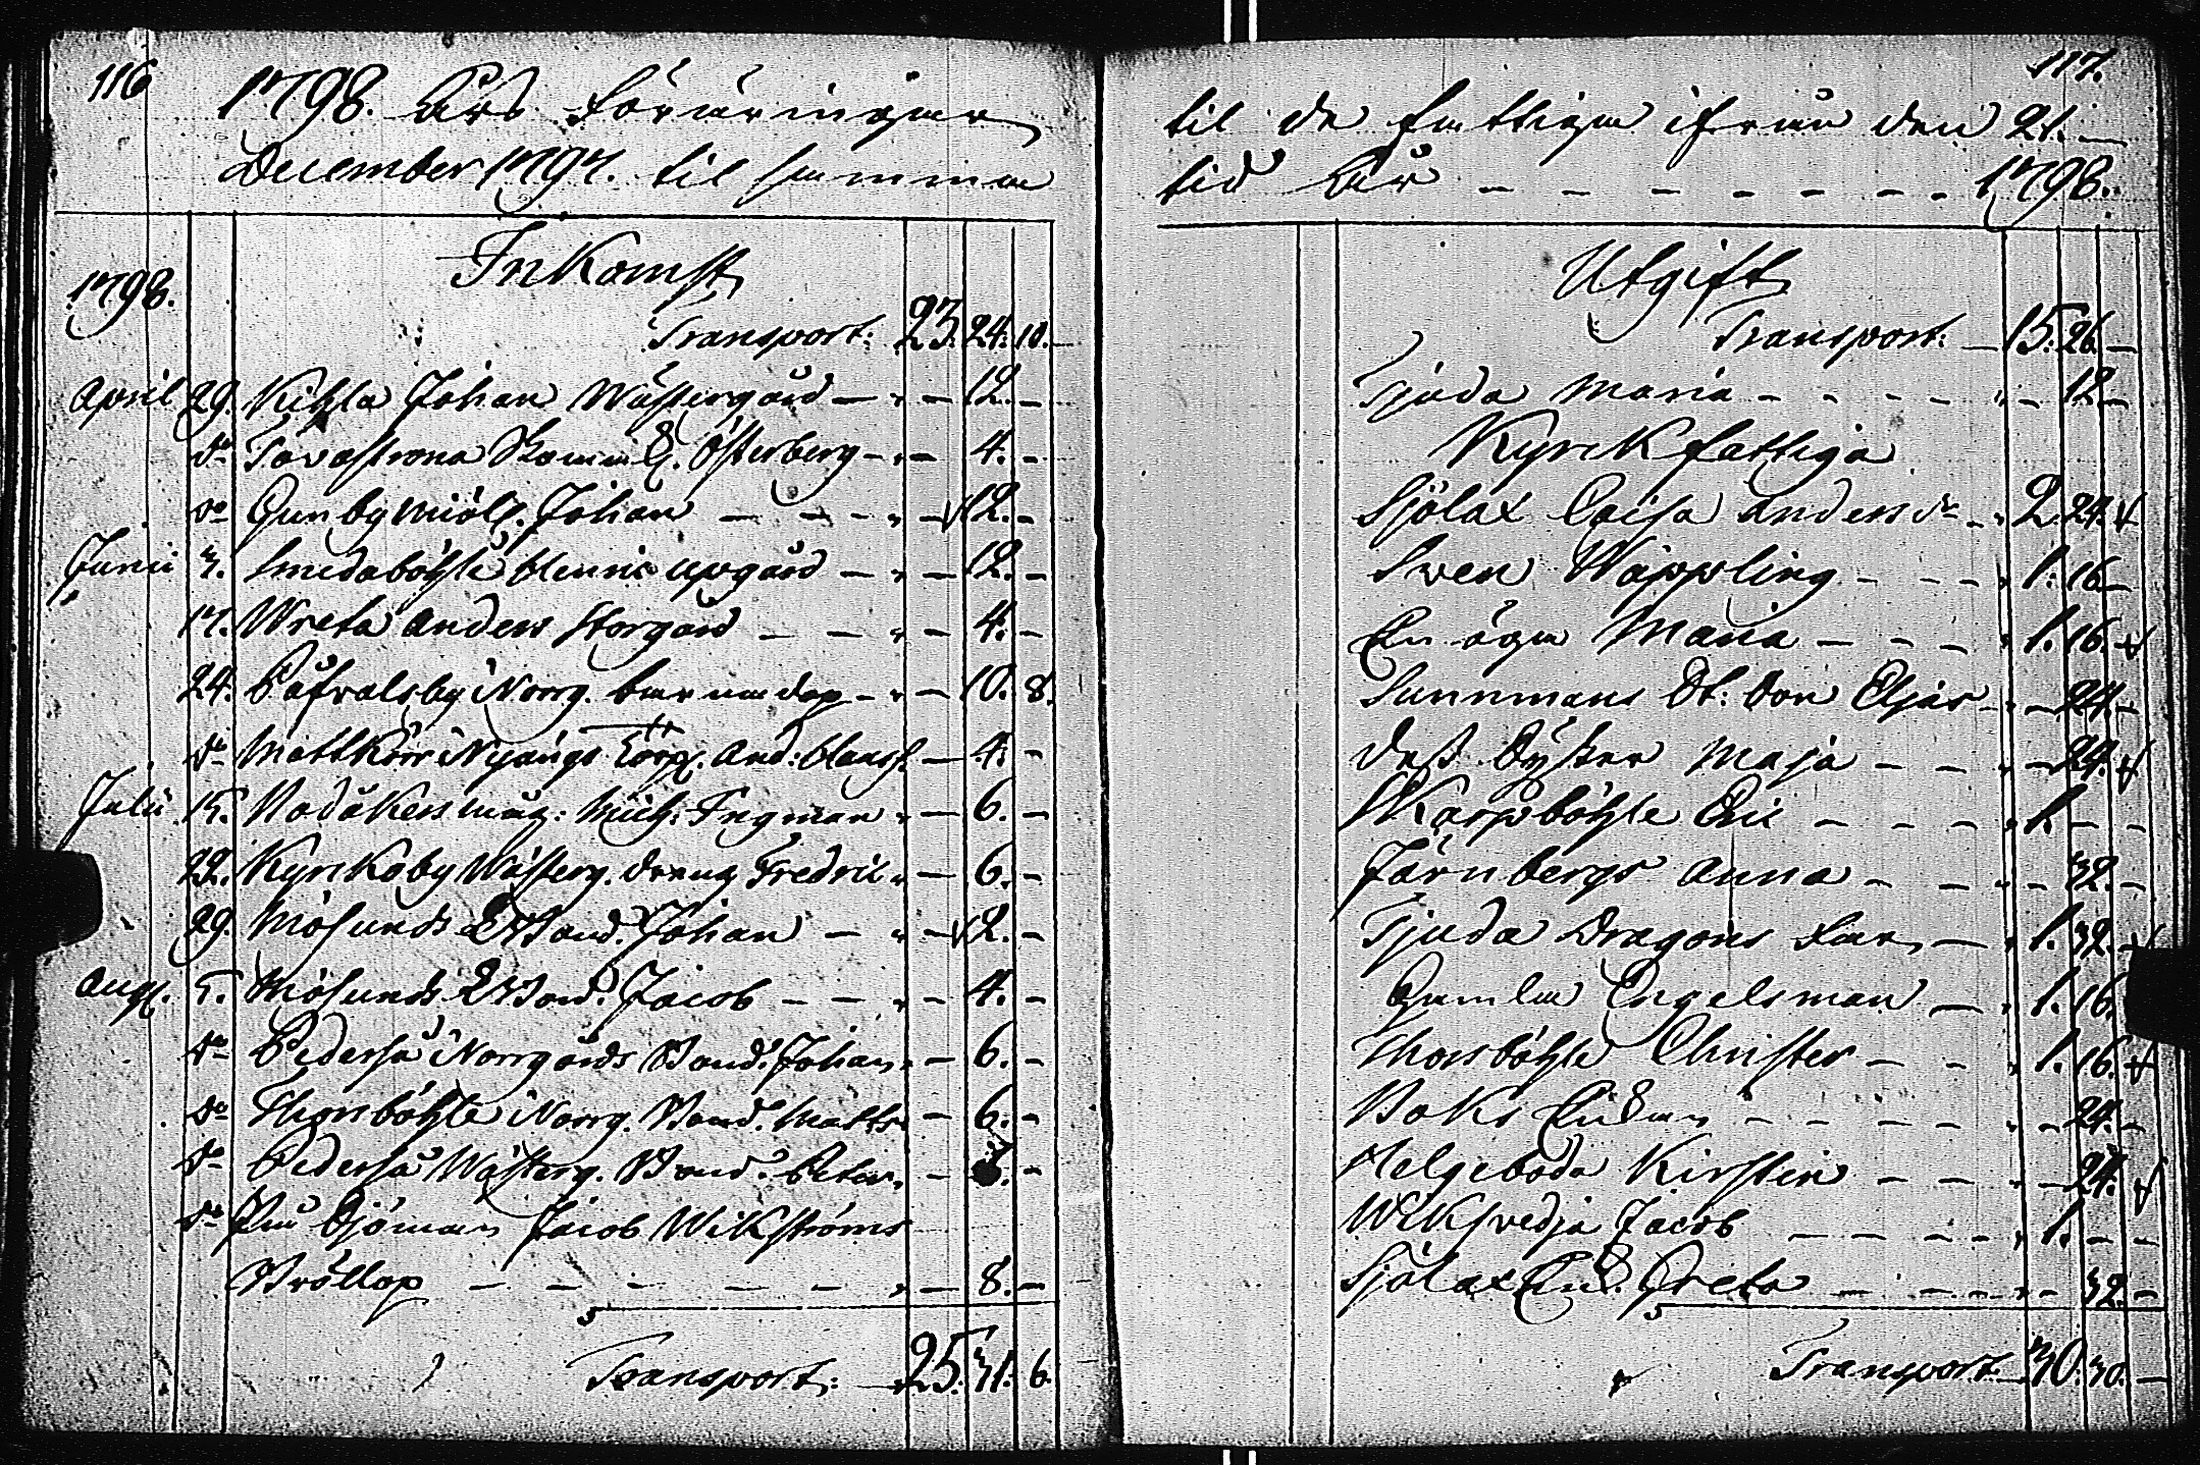 116
1798. Års Föräringar
December 1797. til samma
Inkomst
1798.
Transport: 23. 24. 10.
April 29. Kihla Johan Wästergård — " — 12. —
do Tavastrona Skomm. Österberg — " — 4. —
do Gunby miöln. Johan — — — " — 12. —
Junii 3. Smedaböhle Henric upgård — " — 12. —
17. Wreta Anders Storgård — — " — 4. —
24. Påfvalsby Norrg. barnadop — " — 10. 8.
do Mattkärr Nyängs Torp. And: Clauss. — 4. —
Julii 15. Nodåkers måg: Mich: Ingman " — 6. —
22. Kyrkoby Wästerg. dräng Fredric " — 6. —
29. Mösunds Bond. Johan — " — 12. —
Aug. 5. Mösunds Bond. Jacob — — " — 4. —
do Pederså Norrgårds Bond. Johan " — 6. —
do Thorsböhle Norrg. Bond. Matts — 6. —
do Pederså Wästerg. Bond. Peter " — —
do Sjöman Jacob Wikströms
Bröllop — — — — — — " — 8. —
Transport: — 25. 31. 6.
117.
til de fattiga ifrån den 21.
tid År — — — — — — — — 1798.
Utgift
Transport: — 15. 26. —
Tjuda Maria — — — — " — 12. —
Kyrck fattiga
Sjölax Caisa Anders dr — " 2. 24.
Sven Wäppling — — — " 1. 16 —
En ögda Maria — — — " 1. 16. —
Sunnmans Elias — " — 24. —
dess Syster Maja — — " — 24.
Skarpböhle Eric — — — " 1. — —
Järnbergs Anna — — " — 32. —
Tjuda Dragons Far — " 1. 32. —
Gamla Engelsman — " 1. 16.
Thorsböhle Christer — — " 1. 16.
Boks Enkan — — — — " — 24. —
Helgeboda Kirstin — — " — 24.
Wiksvedja Jacob — — — — " 1. — —
Sjölax Enk. Greta — — — — " — 32. —
Transport — 30. 30. —